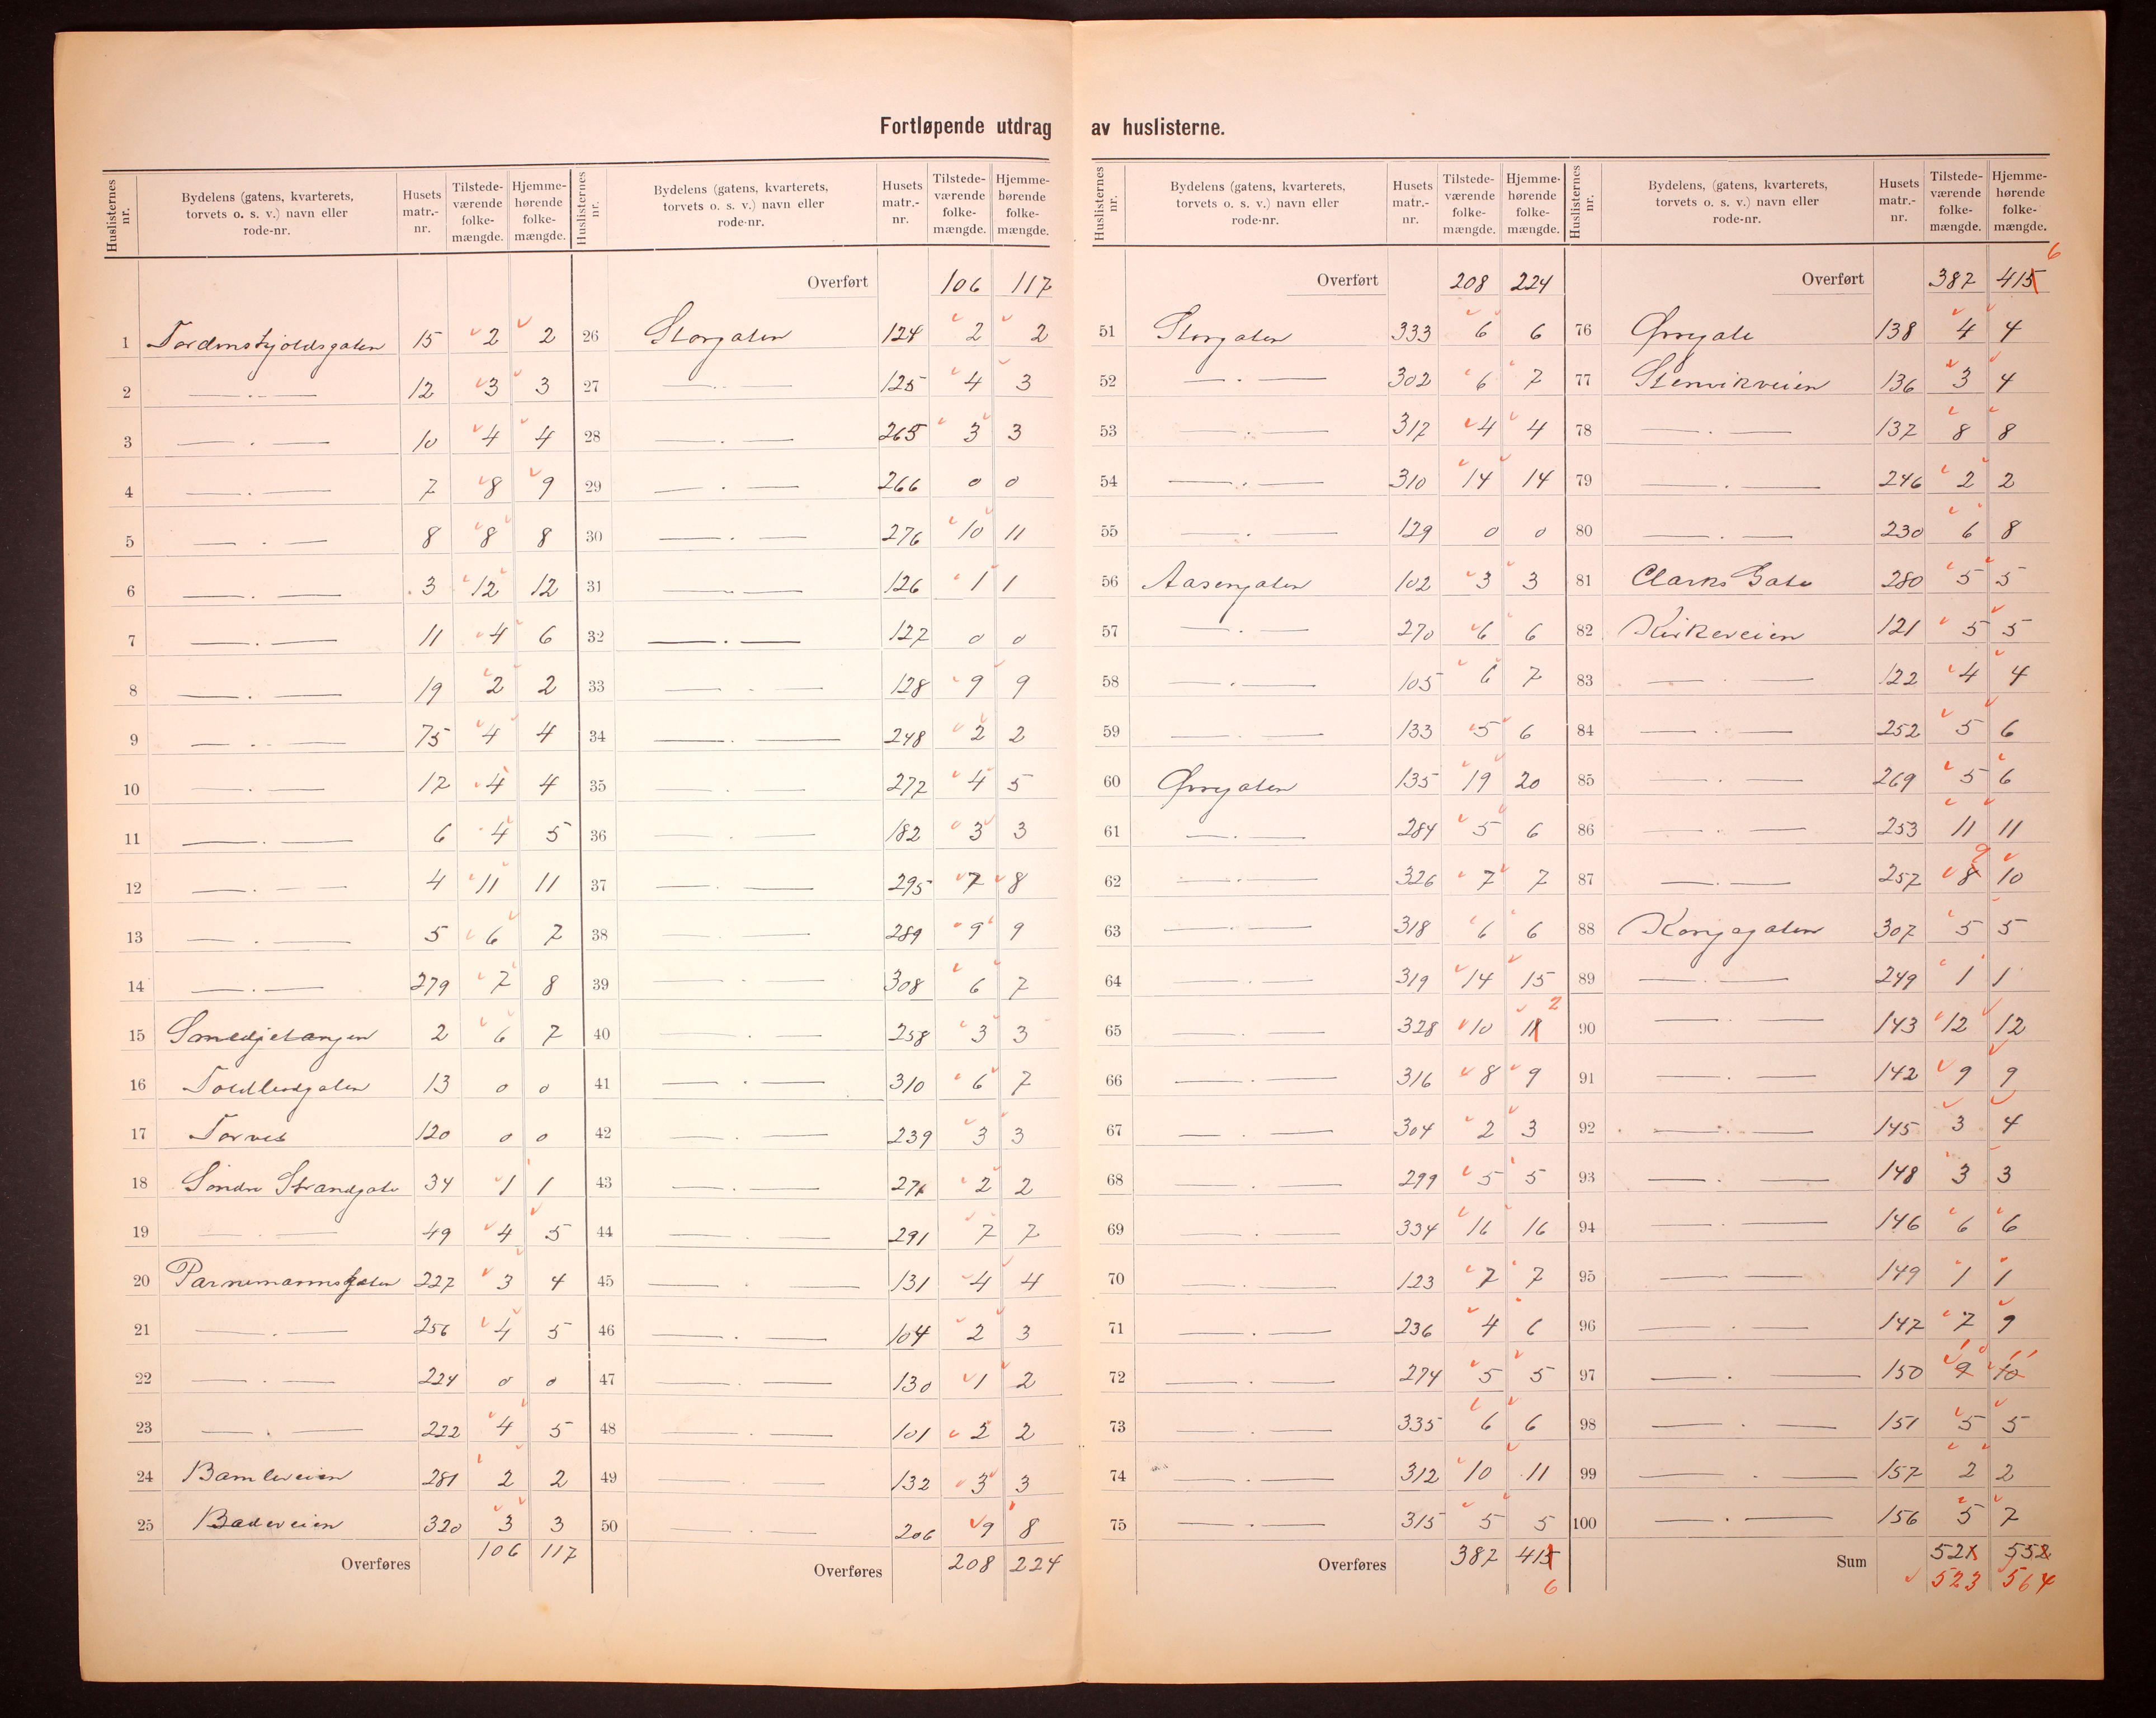 Fortløpende utdrag av huslisterne.
Huslisternes nr. | Bydelens (gatens, kvarterets, torvets o. s. v.) navn eller rode-nr. | Husets matr.-nr. | Tilstede-værende folke-mængde. | Hjemme-hørende folke-mængde.
1 Tordenskjoldsgaten 15 2 2
2 —„— 12 3 3
3 —„— 10 4 4
4 —„— 7 8 9
5 —„— 8 8 8
6 —„— 3 12 12
7 —„— 11 4 6
8 —„— 19 2 2
9 —„— 75 4 4
10 —„— 17 4 4
11 —„— 6 4 5
12 —„— 4 11 11
13 —„— 5 6 7
14 —„— 279 7 8
15 Smedjetangen 2 6 7
16 Toldbodgaten 13 0 0
17 Torvet 120 0 0
18 Söndre Strandgate 34 1 1
19 —„— 49 4 5
20 Parnemannsgaten 227 3 4
21 —„— 256 4 5
22 —„— 224 0 0
23 —„— 222 4 5
24 Bamleveien 281 2 2
25 Badeveien 320 3 3
Overføres 106 117
Huslisternes nr. | Bydelens (gatens, kvarterets, torvets o. s. v.) navn eller rode-nr. | Husets matr.-nr. | Tilstede-værende folke-mængde. | Hjemme-hørende folke-mængde.
Overført 106 117
26 Storgaten 124 2 2
27 —„— 125 4 3
28 —„— 265 3 3
29 —„— 266 0 0
30 —„— 276 10 11
31 —„— 126 1 1
32 —„— 127 0 0
33 —„— 128 9 9
34 —„— 248 2 2
35 —„— 272 4 5
36 —„— 182 3 3
37 —„— 295 7 8
38 —„— 289 9 9
39 —„— 308 6 7
40 —„— 258 3 3
41 —„— 310 6 7
42 —„— 239 3 3
43 —„— 271 2 2
44 —„— 291 7 7
45 —„— 131 4 4
46 —„— 104 2 3
47 —„— 130 1 2
48 —„— 101 2 2
49 —„— 132 3 3
50 —„— 206 9 8
Overføres 208 224
Huslisternes nr. | Bydelens (gatens, kvarterets, torvets o. s. v.) navn eller rode-nr. | Husets matr.-nr. | Tilstede-værende folke-mængde. | Hjemme-hørende folke-mængde.
Overført 208 224
51 Storgaten 333 6 6
52 —„— 302 6 7
53 —„— 317 4 4
54 —„— 310 14 14
55 —„— 129 0 0
56 Aasengaten 102 3 3
57 —„— 270 6 6
58 —„— 105 6 7
59 —„— 133 5 6
60 Øvregaten 135 19 20
61 —„— 284 5 6
62 —„— 326 7 7
63 —„— 318 6 6
64 —„— 319 14 15
65 —„— 328 10 11 2
66 —„— 316 8 9
67 —„— 304 2 3
68 —„— 299 5 5
69 —„— 334 16 16
70 —„— 123 7 7
71 —„— 236 4 6
72 —„— 274 5 5
73 —„— 335 6 6
74 —„— 312 10 11
75 —„— 315 5 5
Overføres 387 415
6
Huslisternes nr. | Bydelens, (gatens, kvarterets, torvets o. s. v.) navn eller rode-nr. | Husets matr.-nr. | Tilstede-værende folke-mængde. | Hjemme-hørende folke-mængde.
Overført 387 415 6
76 Øvregate 138 4 4
77 Stenvikveien 136 3 4
78 —„— 137 8 8
79 —„— 246 2 2
80 —„— 230 6 8
81 Clarks Gate 280 5 5
82 Kirkeveien 121 5 5
83 —„— 122 4 4
84 —„— 252 5 6
85 —„— 269 5 6
86 —„— 253 11 11
87 —„— 257 8 9 10
88 Kongsgaten 307 5 5
89 —„— 249 1 1
90 —„— 143 12 12
91 —„— 142 9 9
92 —„— 145 3 4
93 —„— 148 3 3
94 —„— 146 6 6
95 —„— 149 1 1
96 —„— 147 7 9
97 —„— 150 9 10 10 11
98 —„— 151 5 5
99 —„— 157 2 2
100 —„— 156 5 7
Sum 521 552
523 564